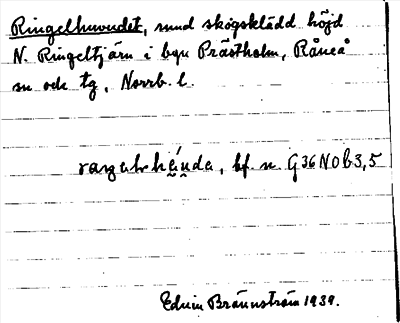 Ringelhuvudet, rund skogsklädd höjd
N. Ringeltjärn i byn Prästholm, Råneå
sn och tg, Norrb. l.
bf. n. G36NOb3,5
Edvin Brännström 1939.